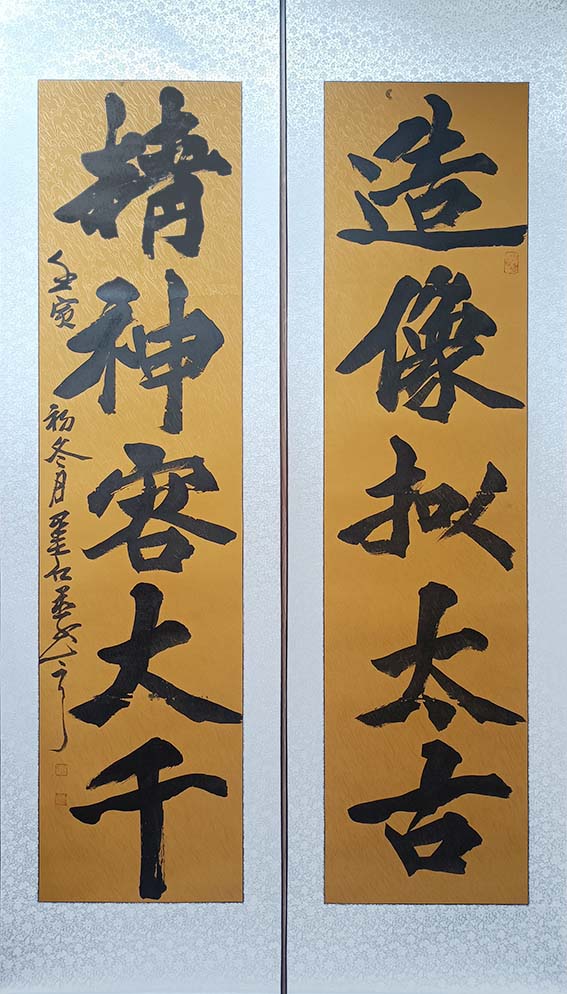 造像拟太古
精神容大千
壬寅
初冬月墨仁